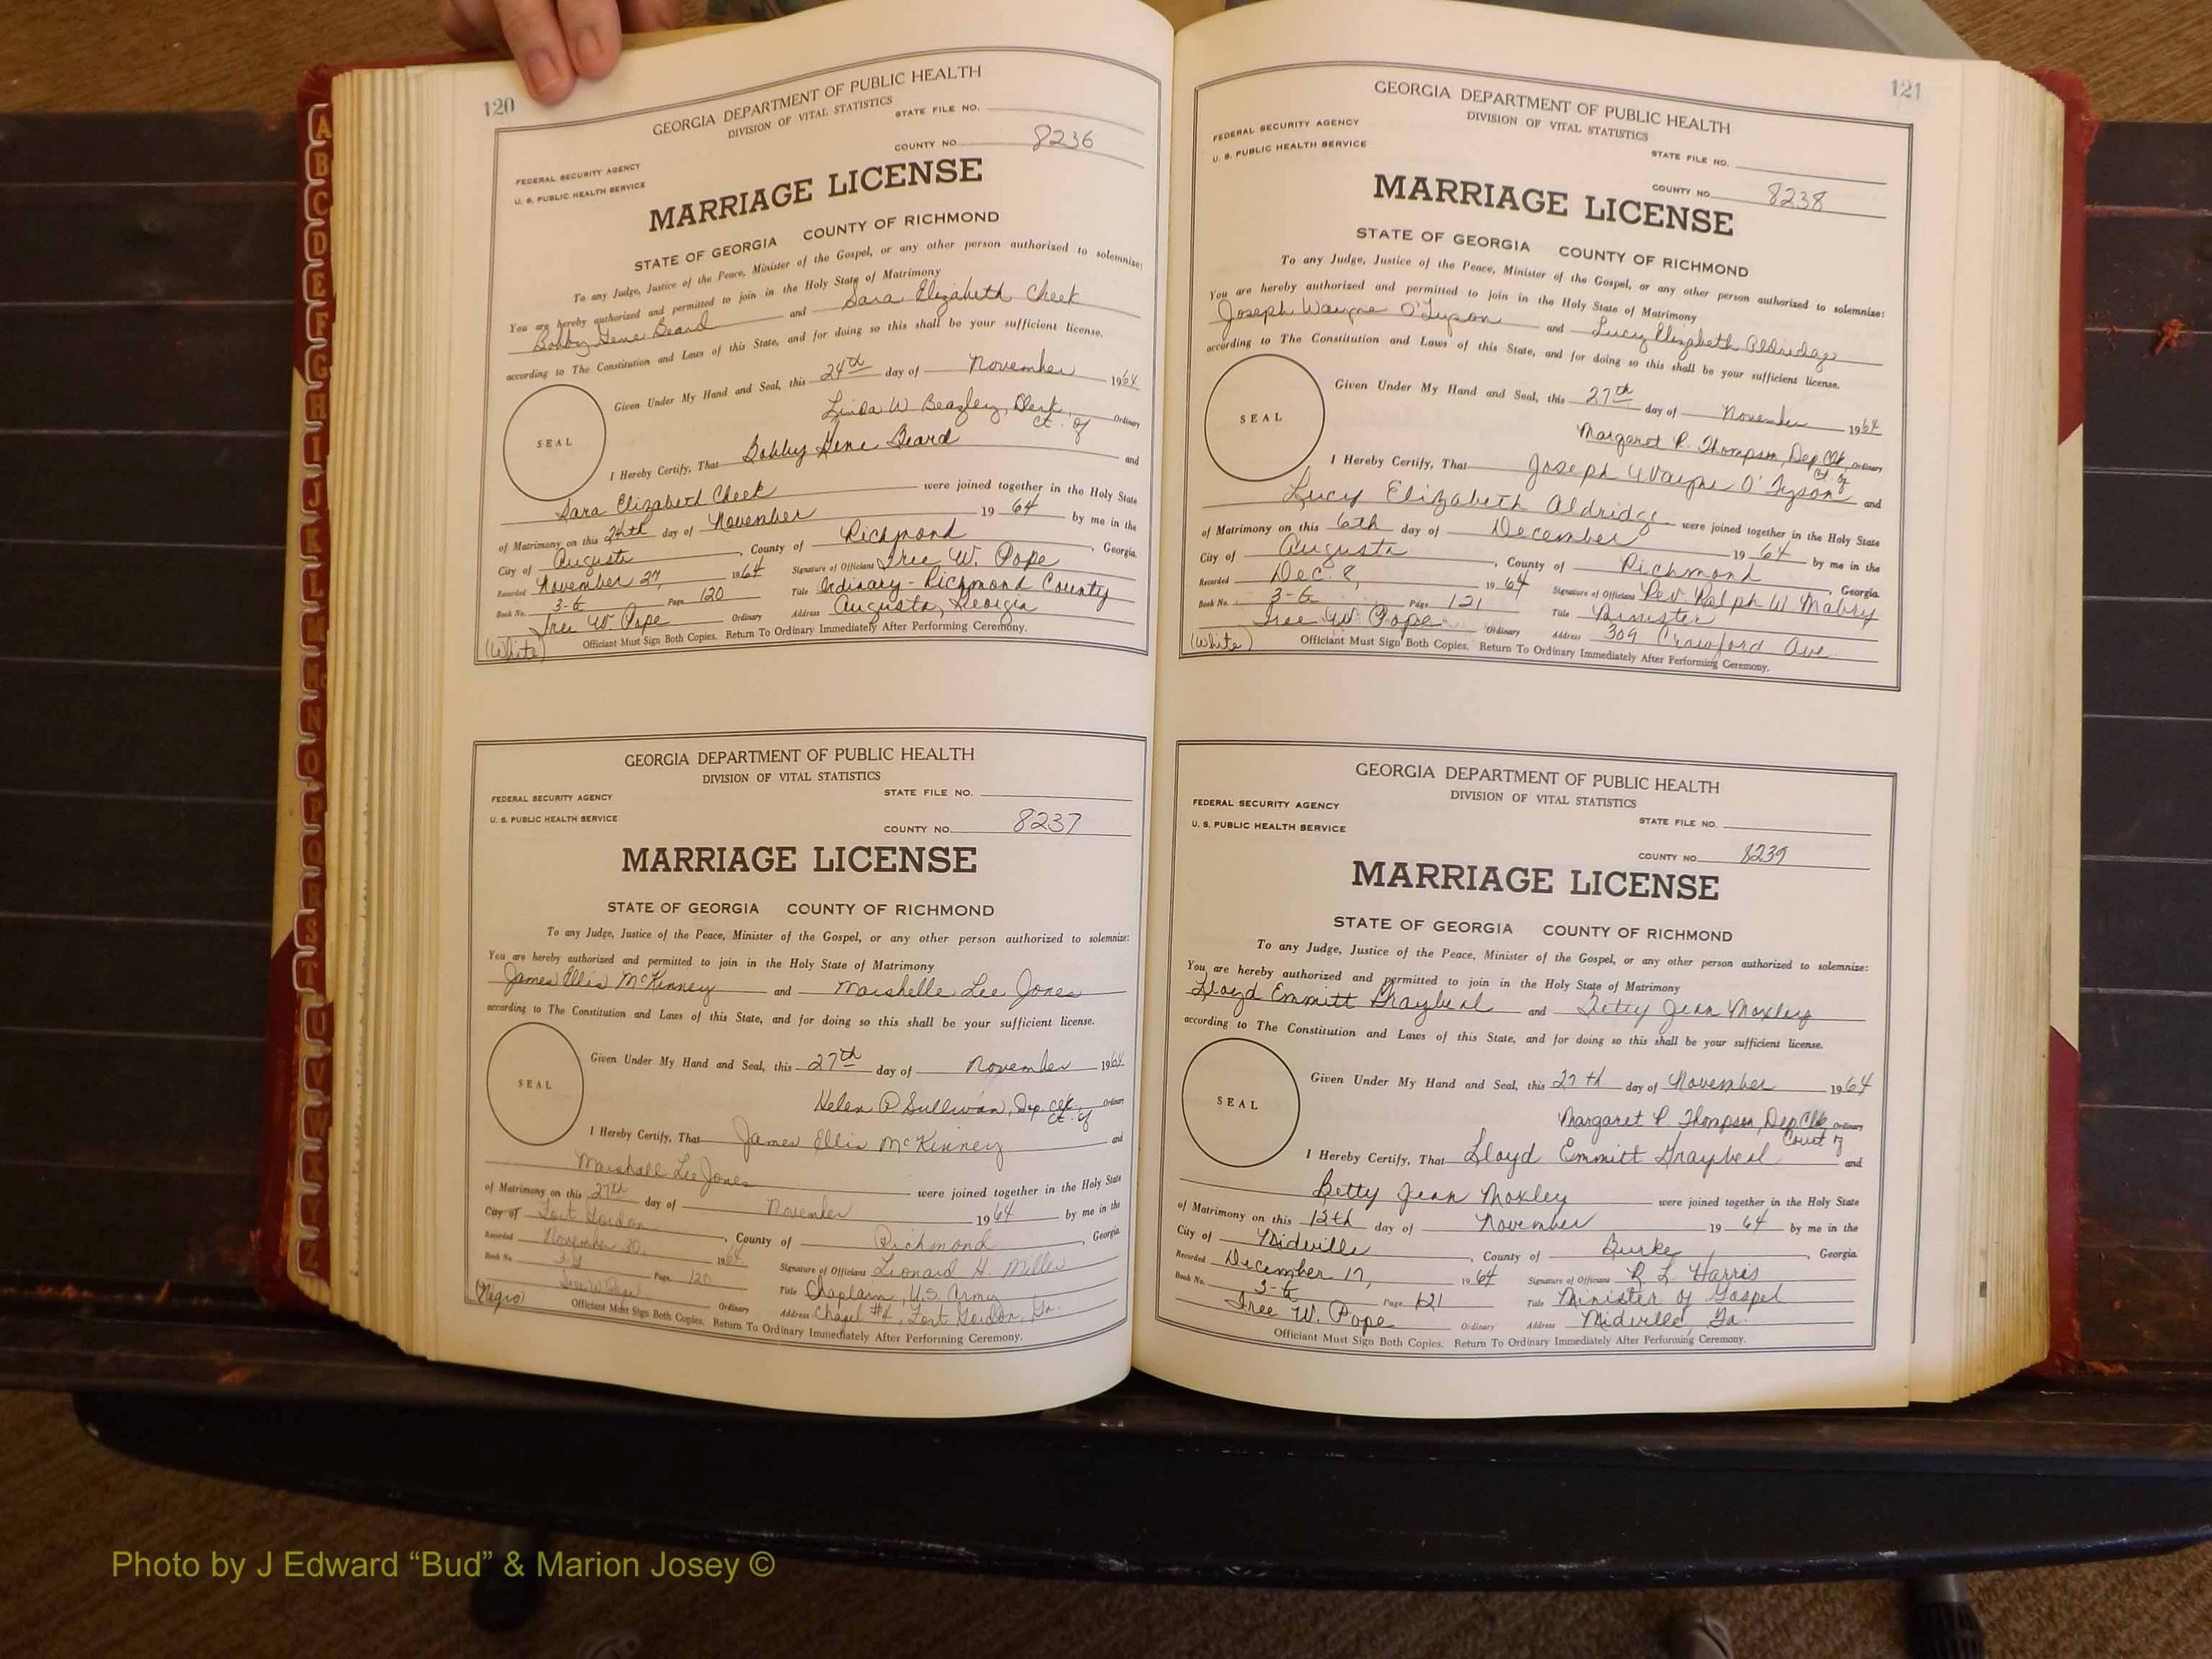 120
GEORGIA DEPARTMENT OF PUBLIC HEALTH
DIVISION OF VITAL STATISTICS
STATE FILE NO.
COUNTY NO. 8236
FEDERAL SECURITY AGENCY
U. S. PUBLIC HEALTH SERVICE
MARRIAGE LICENSE
STATE OF GEORGIA COUNTY OF RICHMOND
To any Judge, Justice of the Peace, Minister of the Gospel, or any other person authorized to solemnize:
You are hereby authorized and permitted to join in the Holy State of Matrimony
Bobby Gene Beard and Sara Elizabeth Cheek
according to The Constitution and Laws of this State, and for doing so this shall be your sufficient license.
Given Under My Hand and Seal, this 24th day of November 1964
Linda W Beazley, Clerk, Ordinary
Ct. of
SEAL
I Hereby Certify, That Bobby Gene Beard and
Sara Elizabeth Cheek were joined together in the Holy State
of Matrimony on this 24th day of November 19 64 by me in the
City of Augusta, County of Richmond, Georgia.
Recorded November 27, 1964 Signature of Officiant Tree W. Pope
Book No. 3-G Page 120 Title Ordinary - Richmond County
Tree W Pope Ordinary Address Augusta, Georgia
(White) Officiant Must Sign Both Copies. Return To Ordinary Immediately After Performing Ceremony.
GEORGIA DEPARTMENT OF PUBLIC HEALTH
DIVISION OF VITAL STATISTICS
STATE FILE NO.
FEDERAL SECURITY AGENCY
U. S. PUBLIC HEALTH SERVICE
COUNTY NO. 8237
MARRIAGE LICENSE
STATE OF GEORGIA COUNTY OF RICHMOND
To any Judge, Justice of the Peace, Minister of the Gospel, or any other person authorized to solemnize:
You are hereby authorized and permitted to join in the Holy State of Matrimony
James Ellis McKinney and Marshelle Lee Jones
according to The Constitution and Laws of this State, and for doing so this shall be your sufficient license.
Given Under My Hand and Seal, this 27th day of November 1964
Helen P Sullivan, Dep. Clk, Ordinary
Ct. of
SEAL
I Hereby Certify, That James Ellis McKinney and
Marshall Lee Jones were joined together in the Holy State
of Matrimony on this 27th day of November 19 64 by me in the
City of Fort Gordon, County of Richmond, Georgia
Recorded November 30, 1964 Signature of Officiant Leonard H. Miller
Book No. 3-G Page 120 Title Chaplain, U.S. Army
Tree W Pope Ordinary Address Chapel #4, Fort Gordon, Ga.
(Negro) Officiant Must Sign Both Copies. Return To Ordinary Immediately After Performing Ceremony.
121
GEORGIA DEPARTMENT OF PUBLIC HEALTH
DIVISION OF VITAL STATISTICS
FEDERAL SECURITY AGENCY
U. S. PUBLIC HEALTH SERVICE
STATE FILE NO.
COUNTY NO. 8238
MARRIAGE LICENSE
STATE OF GEORGIA COUNTY OF RICHMOND
To any Judge, Justice of the Peace, Minister of the Gospel, or any other person authorized to solemnize:
You are hereby authorized and permitted to join in the Holy State of Matrimony
Joseph Wayne O'Tyson and Lucy Elizabeth Aldridge
according to The Constitution and Laws of this State, and for doing so this shall be your sufficient license.
Given Under My Hand and Seal, this 27th day of November 1964
Margaret P. Thompson, Dep Clk, Ordinary
Ct. of
SEAL
I Hereby Certify, That Joseph Wayne O'Tyson and
Lucy Elizabeth Aldridge were joined together in the Holy State
of Matrimony on this 6th day of December 19 64 by me in the
City of Augusta, County of Richmond, Georgia.
Recorded Dec. 8, 19 64 Signature of Officiant Rev. Ralph W Mabry
Book No. 3-G Page 121 Title Minister
Tree W. Pope Ordinary Address 309 Crawford Ave.
(White) Officiant Must Sign Both Copies. Return To Ordinary Immediately After Performing Ceremony.
GEORGIA DEPARTMENT OF PUBLIC HEALTH
DIVISION OF VITAL STATISTICS
FEDERAL SECURITY AGENCY
U. S. PUBLIC HEALTH SERVICE
STATE FILE NO.
COUNTY NO. 8239
MARRIAGE LICENSE
STATE OF GEORGIA COUNTY OF RICHMOND
To any Judge, Justice of the Peace, Minister of the Gospel, or any other person authorized to solemnize:
You are hereby authorized and permitted to join in the Holy State of Matrimony
Lloyd Emmitt Graybeal and Betty Jean Moxley
according to The Constitution and Laws of this State, and for doing so this shall be your sufficient license.
Given Under My Hand and Seal, this 27th day of November 1964
Margaret P. Thompson, Dep Clk Ordinary
Court of
SEAL
I Hereby Certify, That Lloyd Emmitt Graybeal and
Betty Jean Moxley were joined together in the Holy State
of Matrimony on this 12th day of November 19 64 by me in the
City of Midville, County of Burke, Georgia
Recorded December 17, 1964 Signature of Officiant R. L. Harris
Book No. 3-G Page 121 Title Minister of Gospel
Tree W. Pope Ordinary Address Midville, Ga.
Officiant Must Sign Both Copies. Return To Ordinary Immediately After Performing Ceremony.
A
B
C
D
E
F
G
H
I
J
K
L
M
Mc
N
O
P
Q
R
S
T
U
V
W
X
Y
Z
Photo by J Edward “Bud” & Marion Josey ©